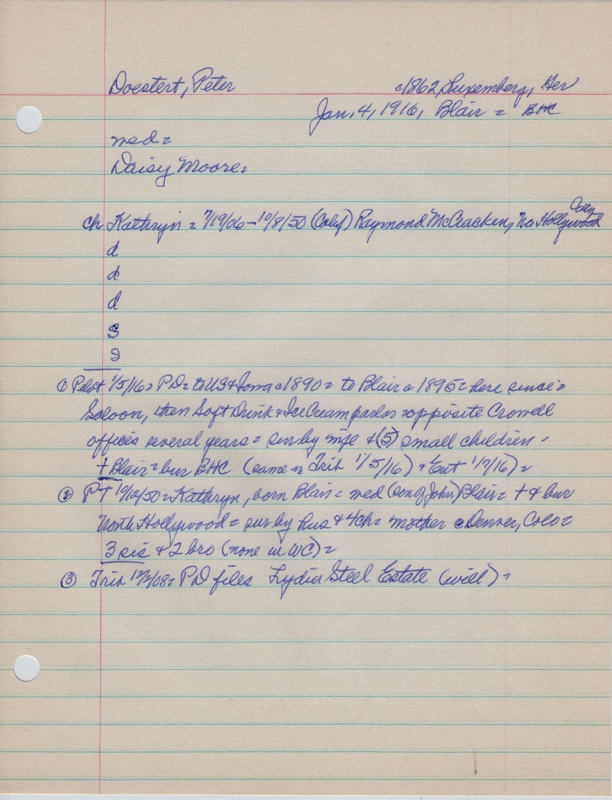 Doestert, Peter c1862, Luxemberg, Ger
Jan. 4, 1916, Blair = BHC
med =
Daisy Moore.
ch Kathryn = 7/19/06 - 10/8/50 (Calif) Raymond McCracken, No. Hollywood
d
d
d
s
s
① Pilot 1/5/16 = PD = to US & Iowa c1890 = to Blair c1895 = here since =
Saloon, then Soft Drink & Ice Cream parlor = opposite Crowell
offices several years = sur by wife & (5) small children -
+ Blair = bur BHC (same in Trib 1/5/16) = Ent 1/7/16) =
② PT 10/12/50 = Kathryn, born Blair = med (son of John) Blair = + & bur
North Hollywood = sur by hus & 4ch = mother @ Denver, Colo =
3 sis & 2 bro (none in WC) =
③ Trib = PD files Lydia Steel Estate (will) =